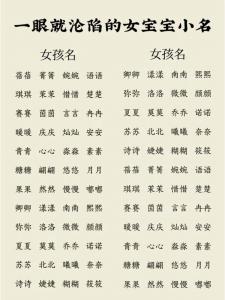 一眼就沦陷的女宝宝小名
女孩名 女孩名
蓓蓓 菁菁 婉婉 语语 卿卿 漾漾 南南 熙熙
琪琪 茉茉 惜惜 楚楚 弥弥 洛洛 微微 颜颜
赛赛 茵茵 言言 冉冉 夏夏 莫莫 乔乔 诺诺
暖暖 庆庆 灿灿 安安 苏苏 北北 曦曦 奈奈
青青 心心 淼淼 素素 诗诗 婕婕 糊糊 筱筱
糖糖 翩翩 悠悠 月月 糖糖 翩翩 悠悠 月月
果果 然然 慢慢 嘟嘟 果果 然然 慢慢 嘟嘟
卿卿 漾漾 南南 熙熙 蓓蓓 菁菁 婉婉 语语
弥弥 洛洛 微微 颜颜 琪琪 茉茉 惜惜 楚楚
夏夏 莫莫 乔乔 诺诺 赛赛 茵茵 言言 冉冉
苏苏 北北 曦曦 奈奈 暖暖 庆庆 灿灿 安安
诗诗 婕婕 糊糊 筱筱 青青 心心 淼淼 素素